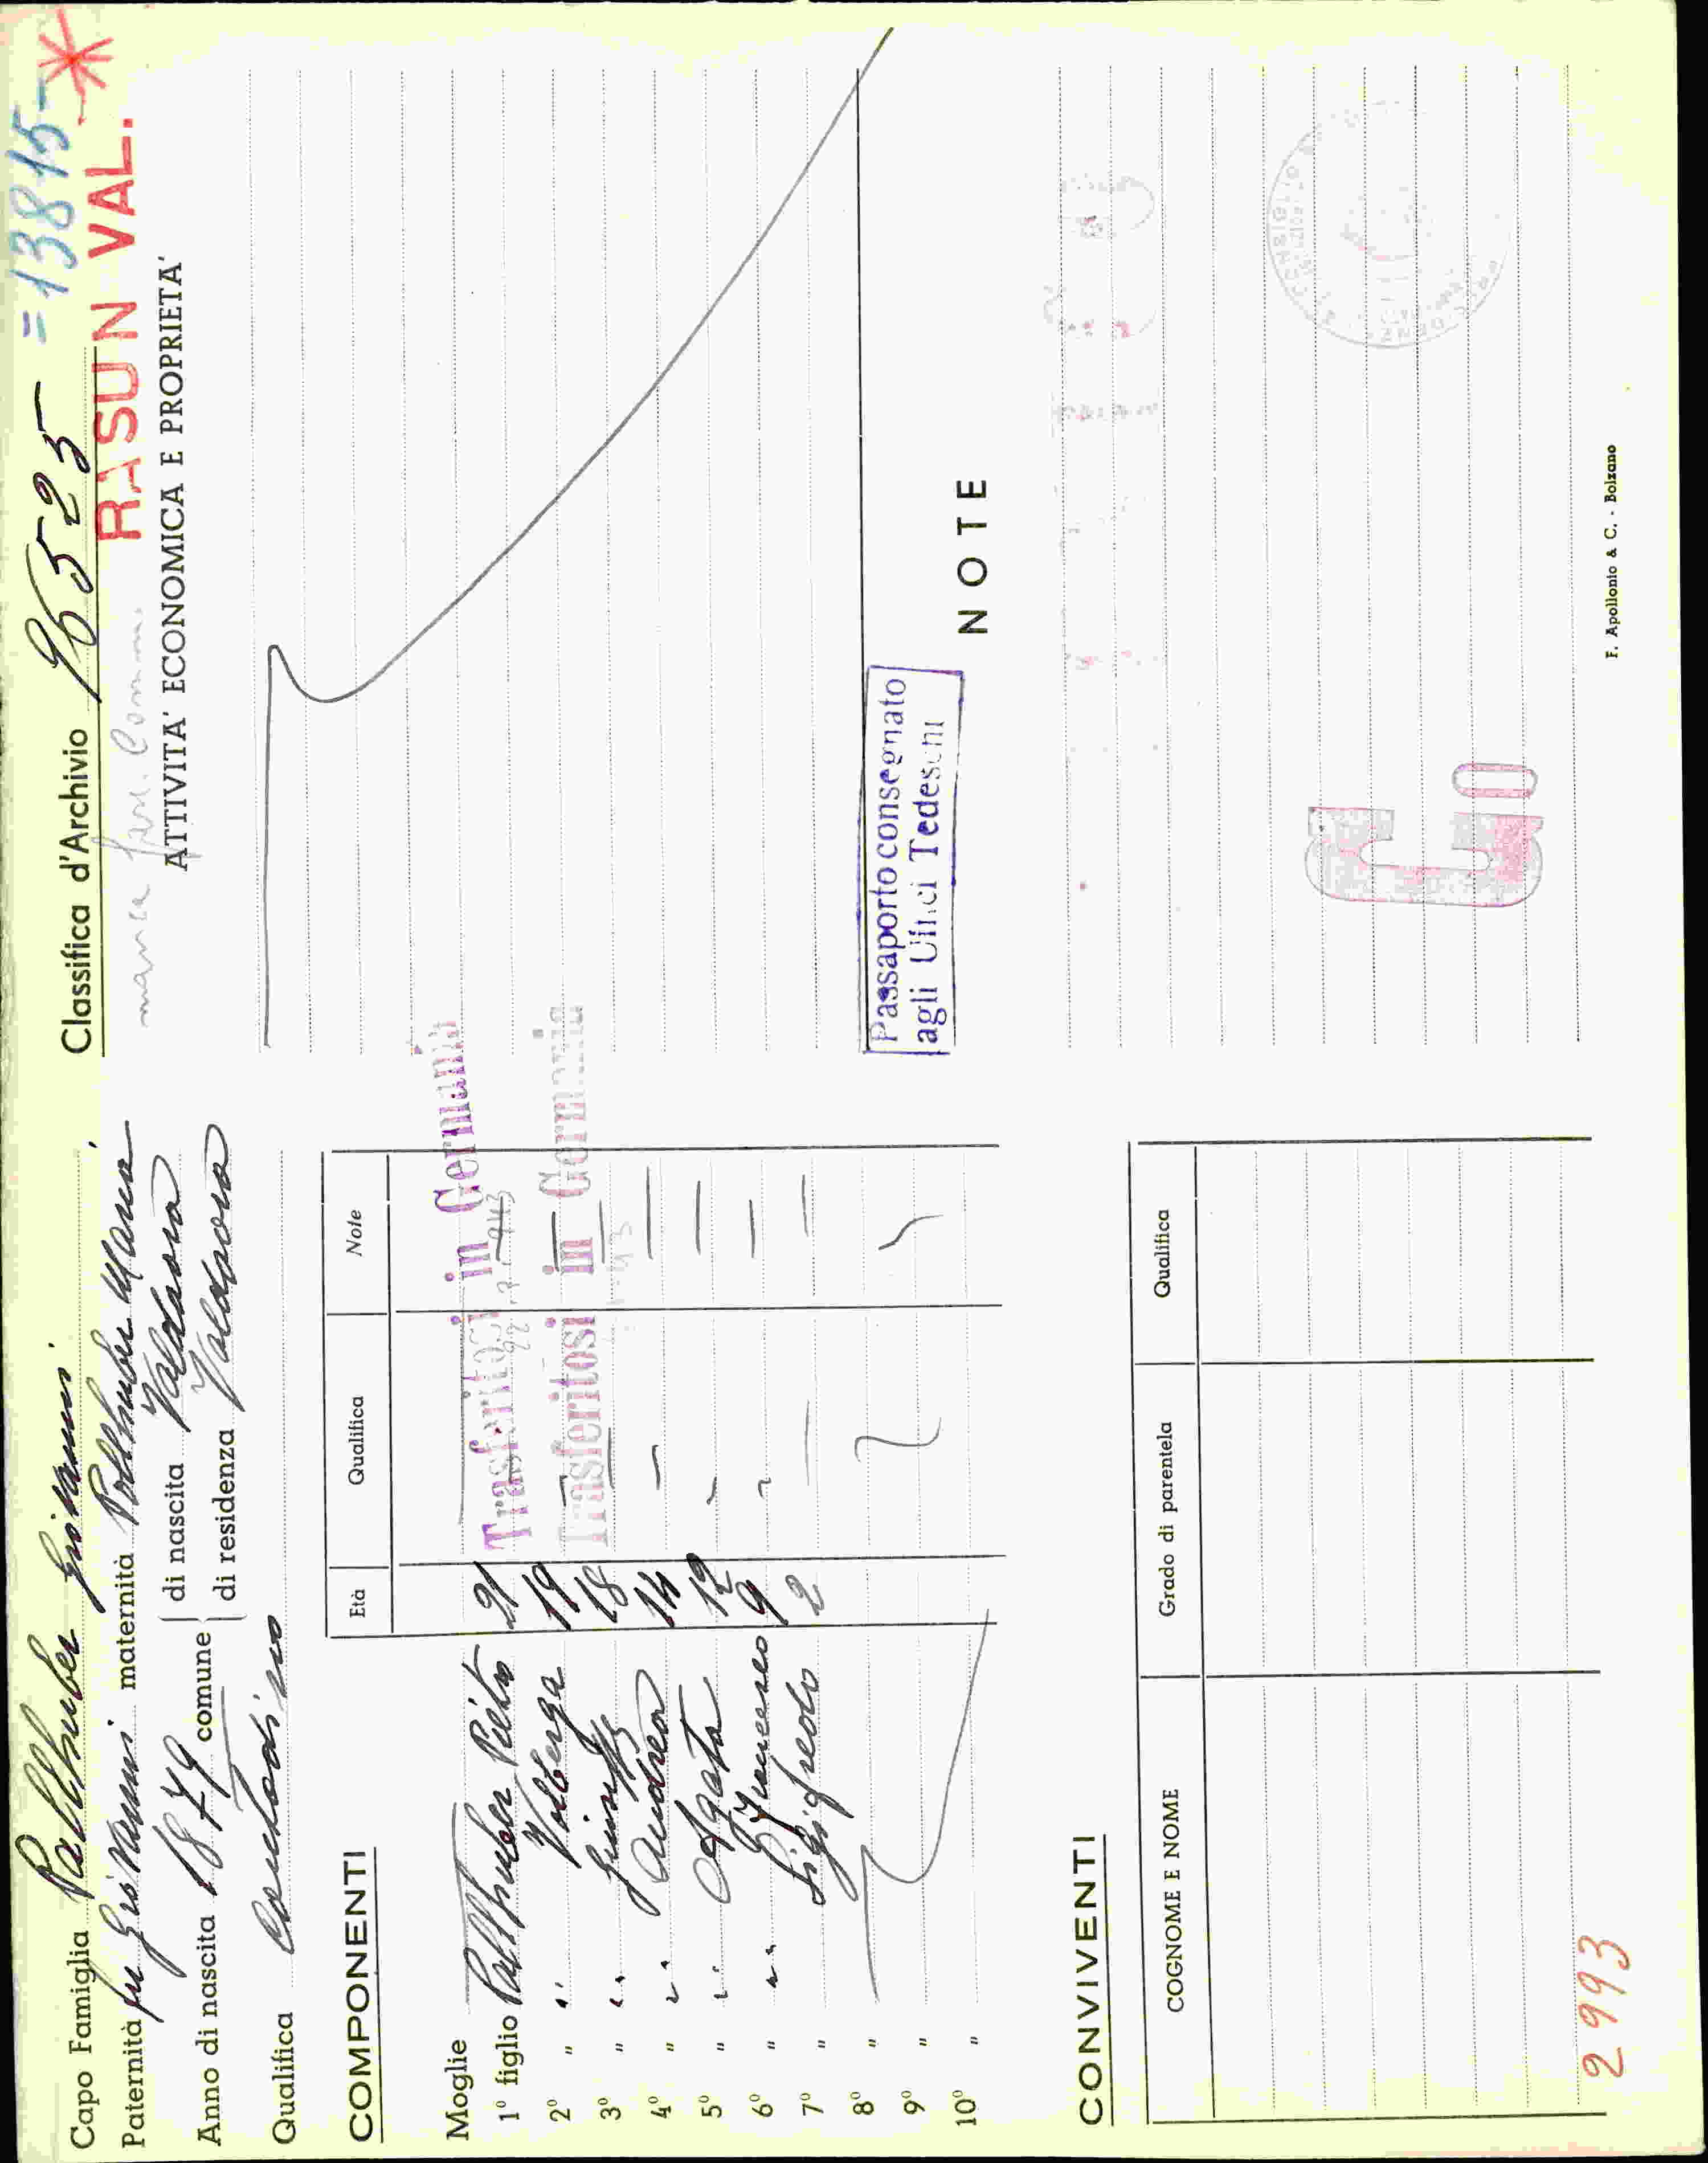 Capo Famiglia Pallhuber Giovanni
Paternità fu Giovanni maternità Pallhuber Maria
Anno di nascita 1879 comune di nascita Valdaora
di residenza Valdaora
Qualifica Contadino
COMPONENTI
Età Qualifica Note
Moglie
1º figlio Pallhuber Pietro 21
2º " " Valburga 19
3º " " Giuseppe 18
4º " " Andrea 14
5º " " Agata 12
6º " " Francesco 9
7º " Sigifredo 2
8º "
9º "
10º "
Trasferitosi in Germania
943
Trasferitosi in Germania
CONVIVENTI
COGNOME E NOME Grado di parentela Qualifica
2993
Classifica d'Archivio 96525 =13815-
manca fam. Comm.
RASUN VAL.
ATTIVITA' ECONOMICA E PROPRIETA'
Passaporto consegnato
agli Uffici Tedeschi
NOTE
F. Apollonio & C. - Bolzano